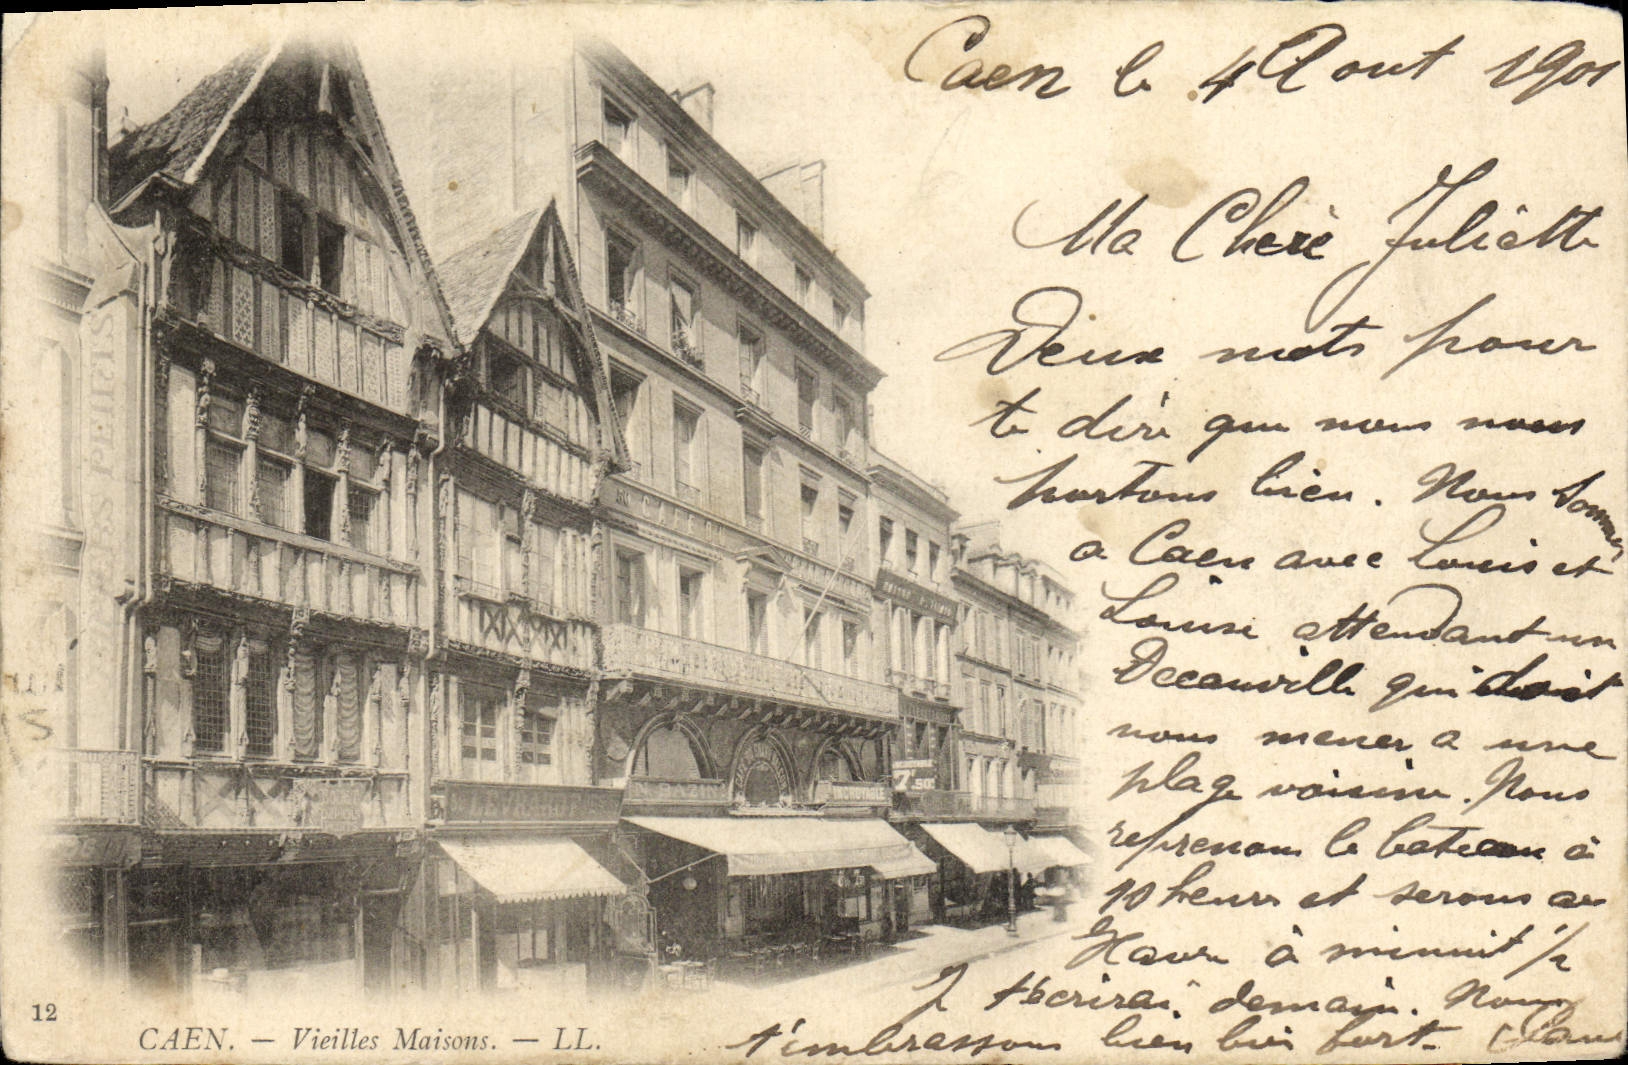 Caen le 4 Aout 1901
Ma Cheré Juliette
Deux mots pour
te diré que nous nous
portons bien. Nous sommes
a Caen avec Louis et
Louise attendant un
Decauville qui doit
nous mener a une
plage voisine. Nous
reprenons le bateau à
10 heures et serons au
Havre à minuit 1/2
J t'écrirai demain. Nous
t'embrassons bien bien fort.
LES PETITS
7
12
CAEN. — Vieilles Maisons. — LL.